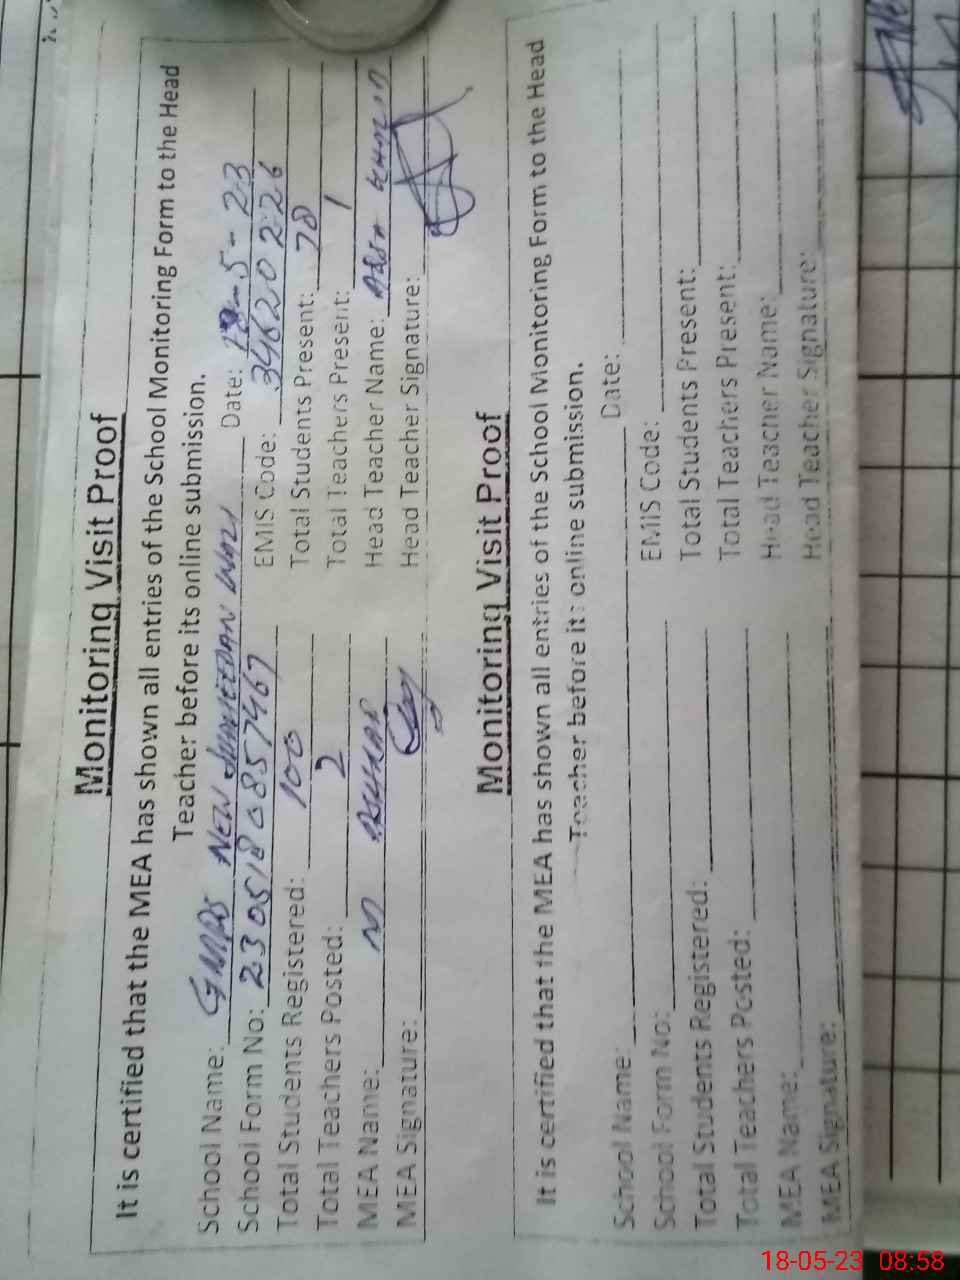 Monitoring Visit Proof
It is certified that the MEA has shown all entries of the School Monitoring Form to the Head
Teacher before its online submission.
School Name: GMPS NEW Date: 18-5-23
School Form No: 2305180857467 EMIS Code: 34620226
Total Students Registered: 100 Total Students Present: 78
Total Teachers Posted: 2 Total Teachers Present: 1
MEA Name: M ASGHAR Head Teacher Name:
MEA Signature: Head Teacher Signature:
Monitoring Visit Proof
It is certified that the MEA has shown all entries of the School Monitoring Form to the Head
Teacher before its online submission.
School Name: Date:
School Form No: EMIS Code:
Total Students Registered: Total Students Present:
Total Teachers Posted: Total Teachers Present:
MEA Name: Head Teacher Name:
MEA Signature: Head Teacher Signature:
18-05-23 08:58